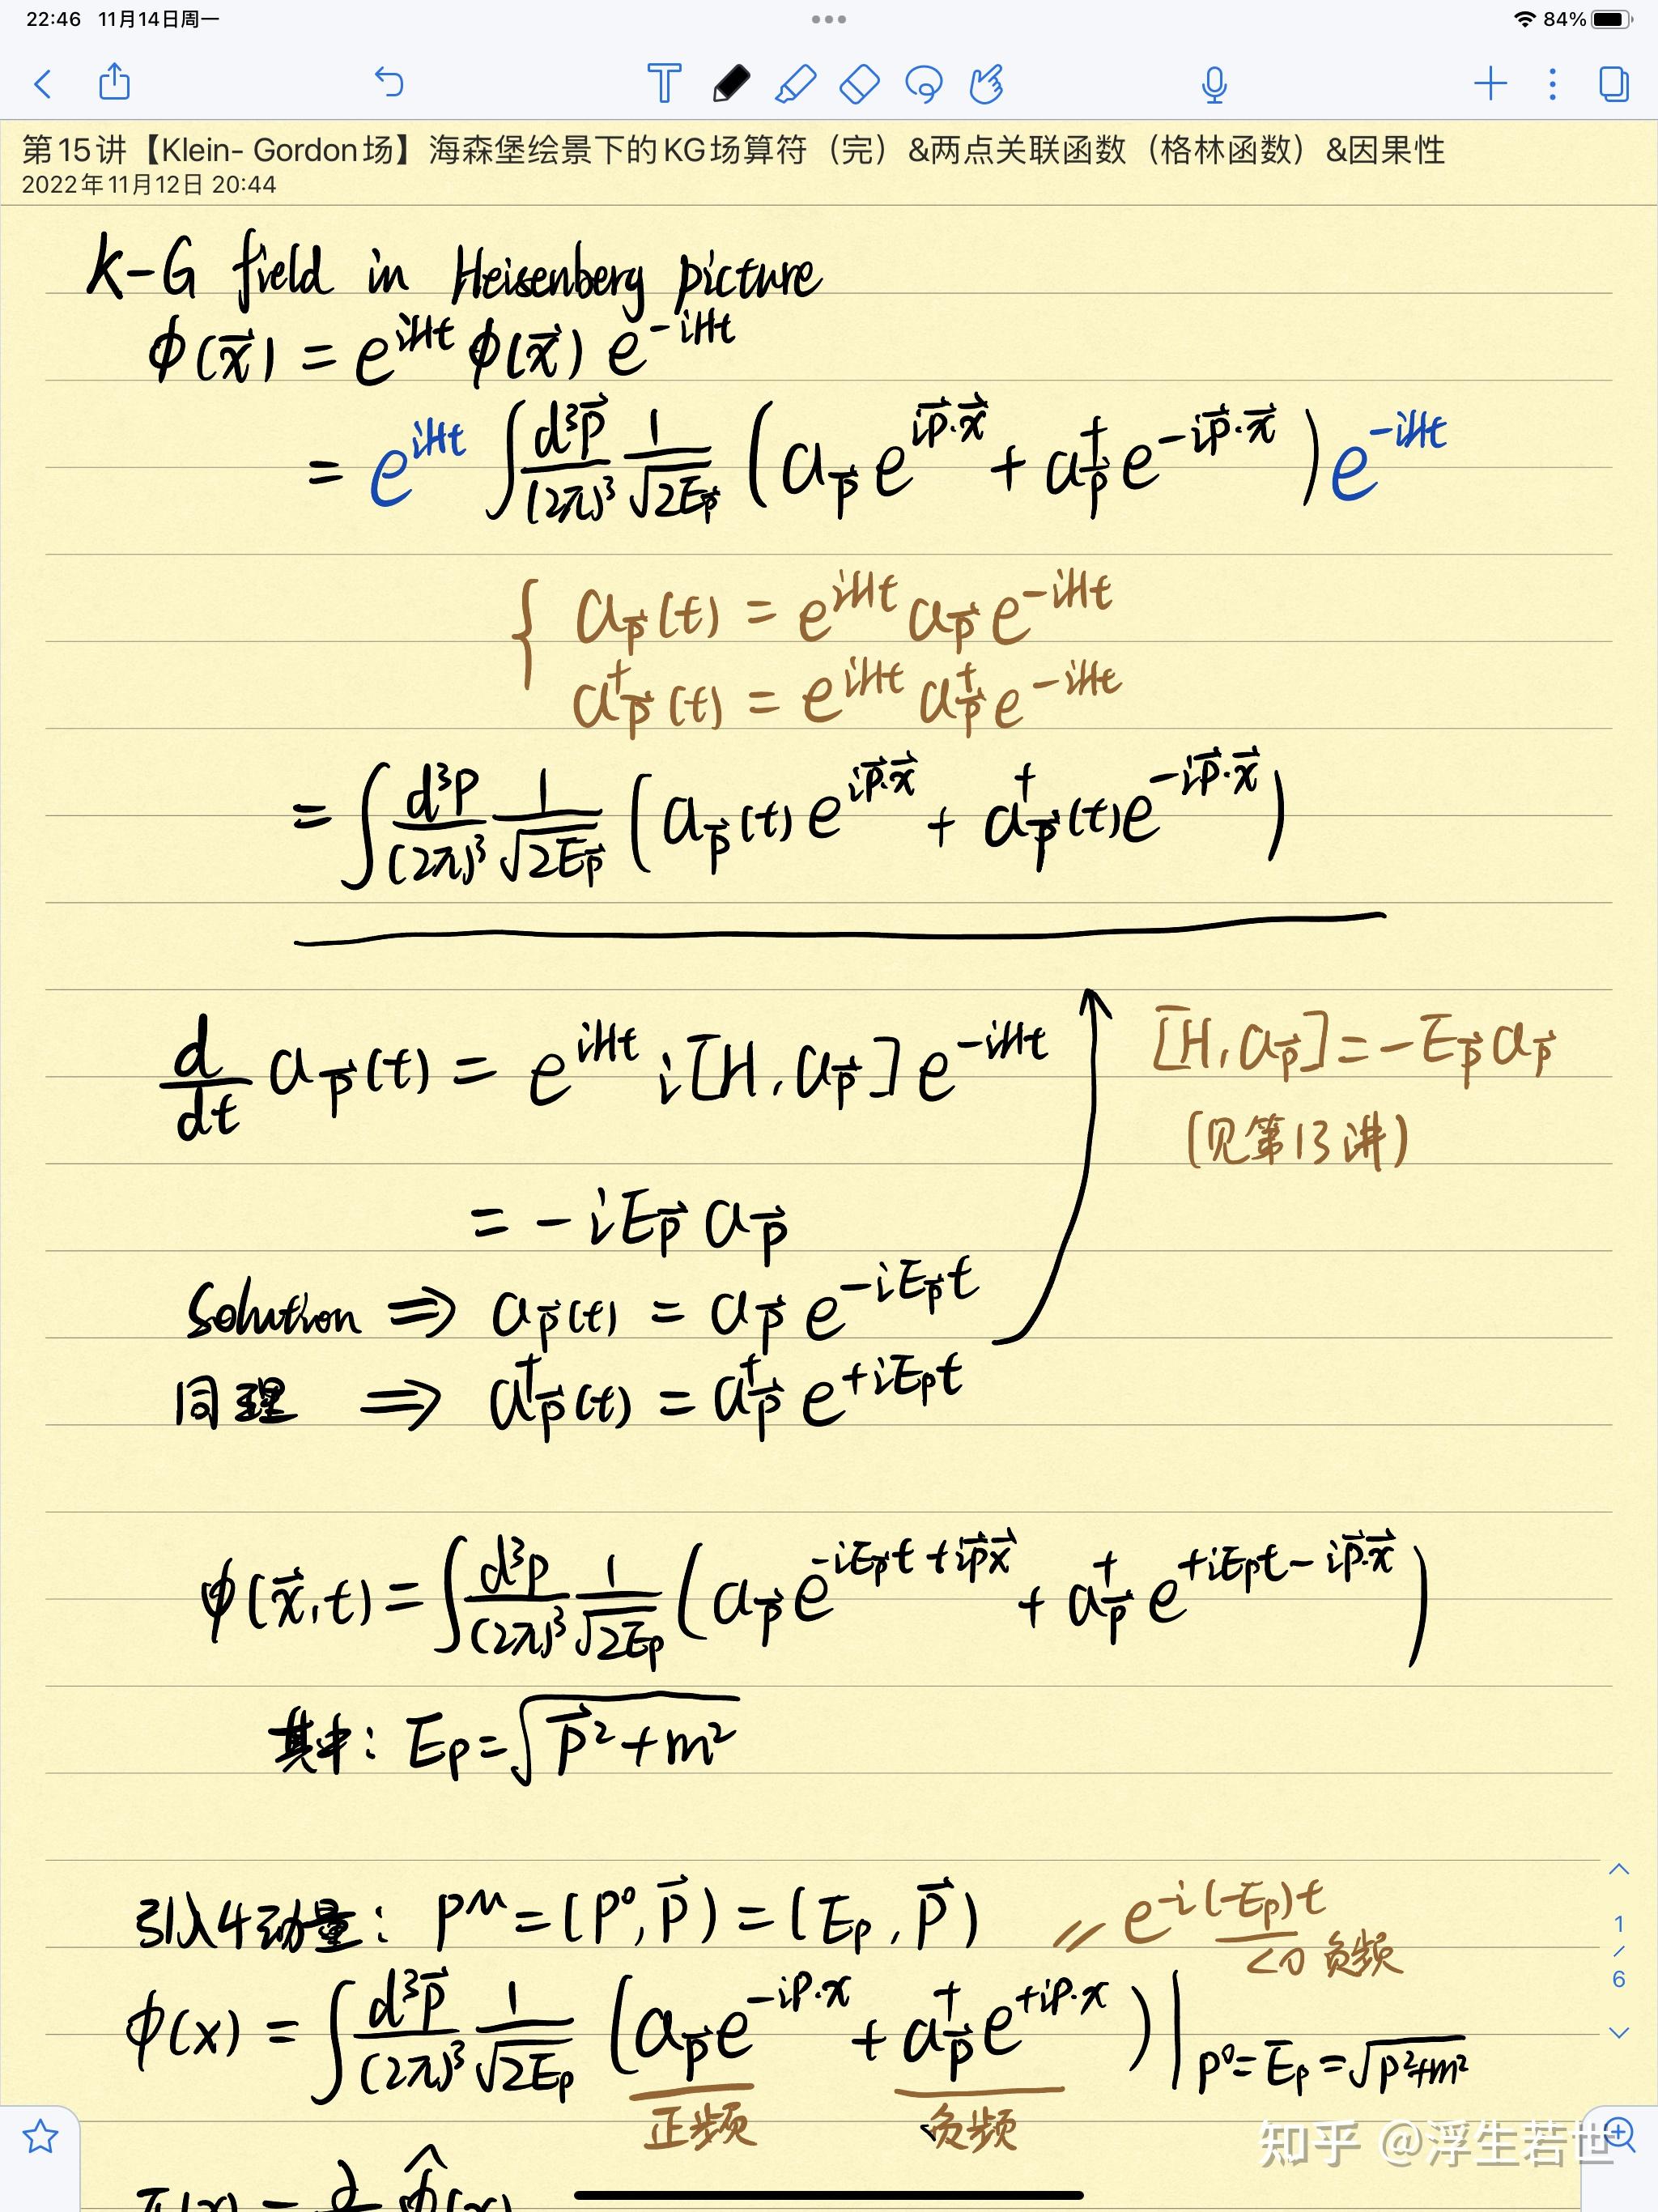 22:46 11月14日周一
84%
第15讲【Klein- Gordon场】海森堡绘景下的KG场算符（完）&两点关联函数（格林函数）&因果性
2022年11月12日 20:44
K-G field in Heisenberg picture
ϕ(x⃗) = e^{iHt} ϕ(x⃗) e^{-iHt}
= e^{iHt} ∫ d³p⃗/(2π)³ 1/√(2E_p⃗) (a_p⃗ e^{ip⃗·x⃗} + a†_p⃗ e^{-ip⃗·x⃗}) e^{-iHt}
{ a_p⃗(t) = e^{iHt} a_p⃗ e^{-iHt}
a†_p⃗(t) = e^{iHt} a†_p⃗ e^{-iHt}
= ∫ d³p/(2π)³ 1/√(2E_p⃗) (a_p⃗(t) e^{ip⃗·x⃗} + a†_p⃗(t) e^{-ip⃗·x⃗})
d/dt a_p⃗(t) = e^{iHt} i[H, a_p⃗] e^{-iHt}
[H, a_p⃗] = -E_p⃗ a_p⃗
(见第13讲)
= -iE_p⃗ a_p⃗
Solution ⇒ a_p⃗(t) = a_p⃗ e^{-iE_p⃗t}
同理 ⇒ a†_p⃗(t) = a†_p⃗ e^{+iE_pt}
ϕ(x⃗,t) = ∫ d³p/(2π)³ 1/√(2E_p) (a_p⃗ e^{-iE_pt+ip⃗x⃗} + a†_p⃗ e^{+iE_pt-ip⃗·x⃗})
其中: E_p = √(p⃗²+m²)
引入4动量: p^μ = (p⁰, p⃗) = (E_p, p⃗)
// e^{-i(-E_p)t}
<0 负频
ϕ(x) = ∫ d³p⃗/(2π)³ 1/√(2E_p) (a_p⃗ e^{-ip·x} + a†_p⃗ e^{+ip·x})|_{p⁰=E_p=√(p²+m²)}
正频 负频
1
/
6
知乎 @浮生若世